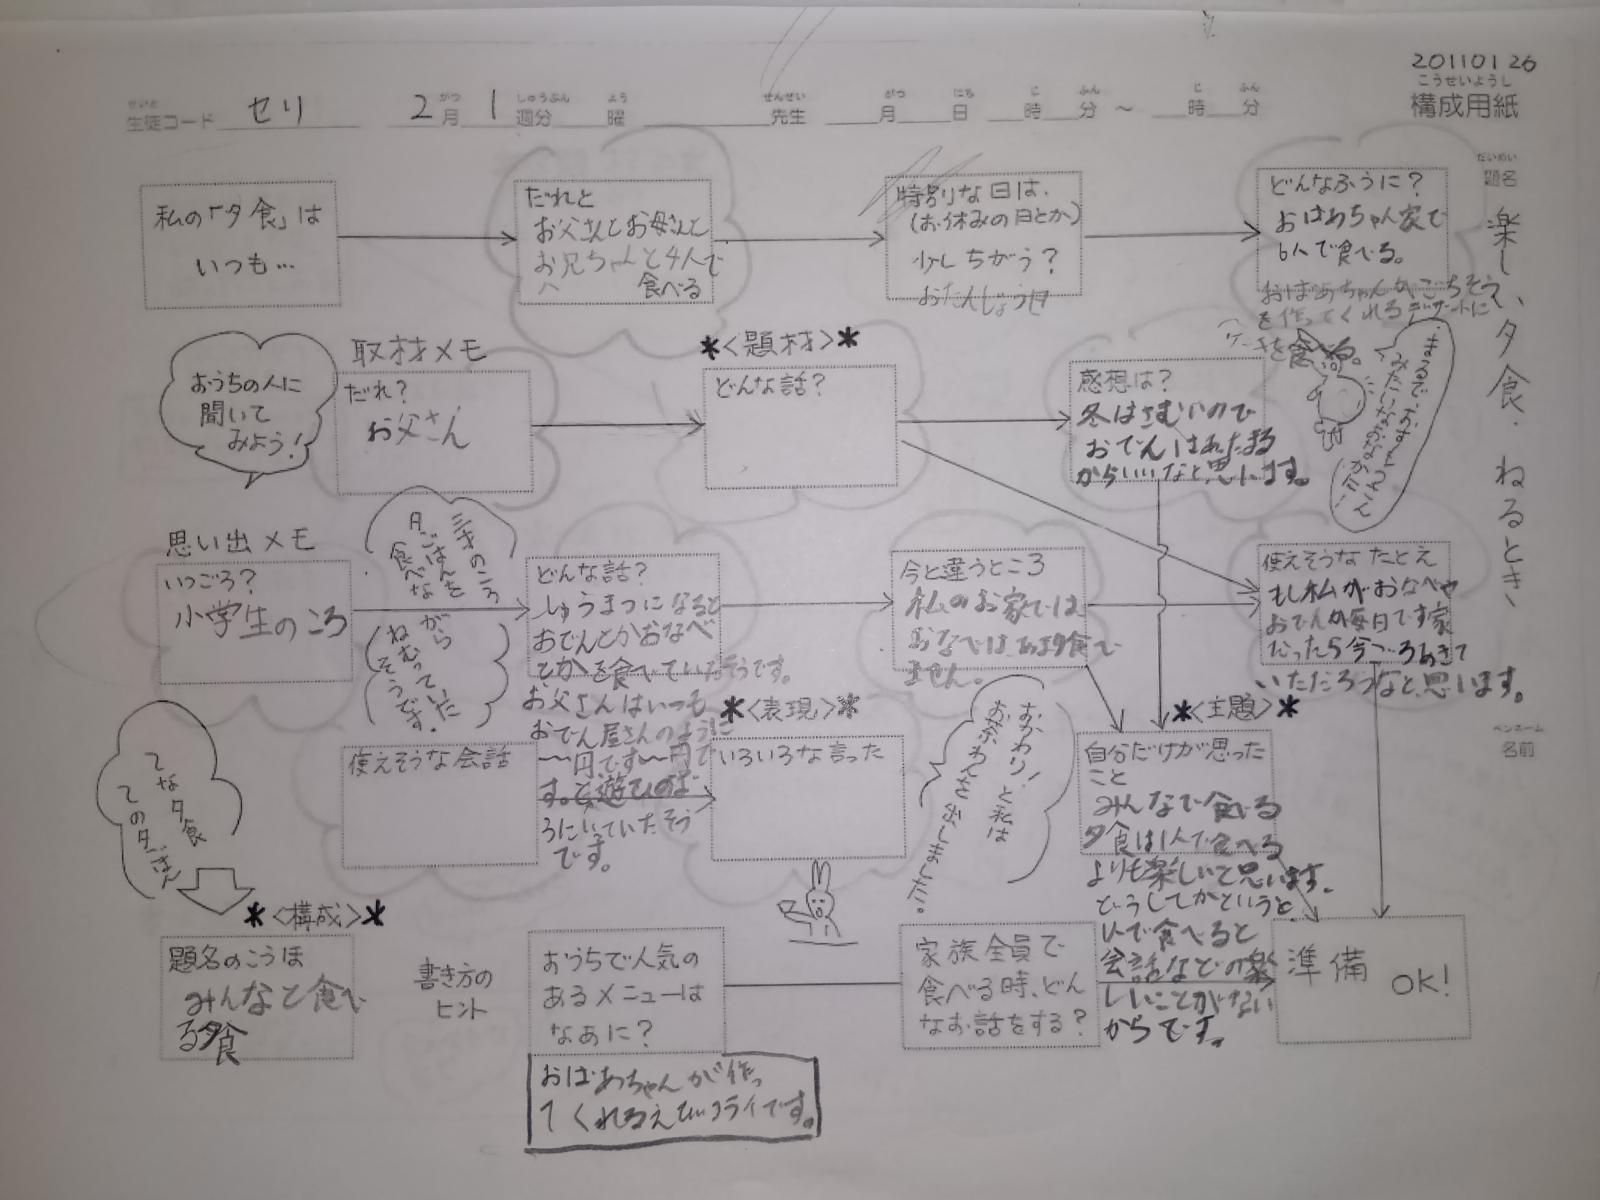 20110126
こうせいようし
構成用紙
せいと
生徒コード セリ 2月 1週分 曜 先生 月 日 時 分 〜 時 分
がつ しゅうぶん よう せんせい がつ にち じ ふん じ ふん
だいめい
題名
楽しい夕食・ねるとき
私の「夕食」は
いつも…
だれと
お父さんとお母さんと
お兄ちゃんと4人で
食べる
特別な日は、
(お休みの日とか)
少しちがう?
おたんじょう日
どんなふうに?
おばあちゃん家で
6人で食べる。
おばあちゃんがごちそう
を作ってくれるデザートに
ケーキを食べる。
おうちの人に
聞いて
みよう!
取材メモ
だれ?
お父さん
*<題材>*
どんな話?
感想は?
冬はさむいので
おでんはあたたまる
からいいなと思います。
まるで、おすもうさん
みたいなおなかだ!
思い出メモ
いつごろ?
小学生のころ
三才のころ
夕ごはんを
食べな
がら
ねむっていた
そうです。
どんな話?
しゅうまつになると
おでんとかおなべ
とかを食べていたそうです。
お父さんはいつも
おでん屋さんのように
〜円です〜円で
す。と遊び
ていたそう
です。
今と違うところ
私のお家では、
おなべはあまり食べ
ません。
使えそうなたとえ
もし私がおなべや
おでんが毎日です家
だったら今ごろあきて
いただろうなと思います。
てな夕食
ての夕ごはん
使えそうな会話
*<表現>*
いろいろな言った
おかわり!と私は
おちゃわんを出しました。
*<主題>*
自分だけが思った
こと
みんなで食べる
夕食は1人で食べる
よりも楽しいと思います。
どうしてかというと、
1人で食べると
会話などの楽
しいことがない
からです。
ペンネーム
名前
*<構成>*
題名のこうほ
みんなと食べ
る夕食
書き方の
ヒント
おうちで人気の
あるメニューは
なあに?
おばあちゃんが作っ
てくれるえびフライです。
家族全員で
食べる時、どん
なお話をする?
準備
OK!